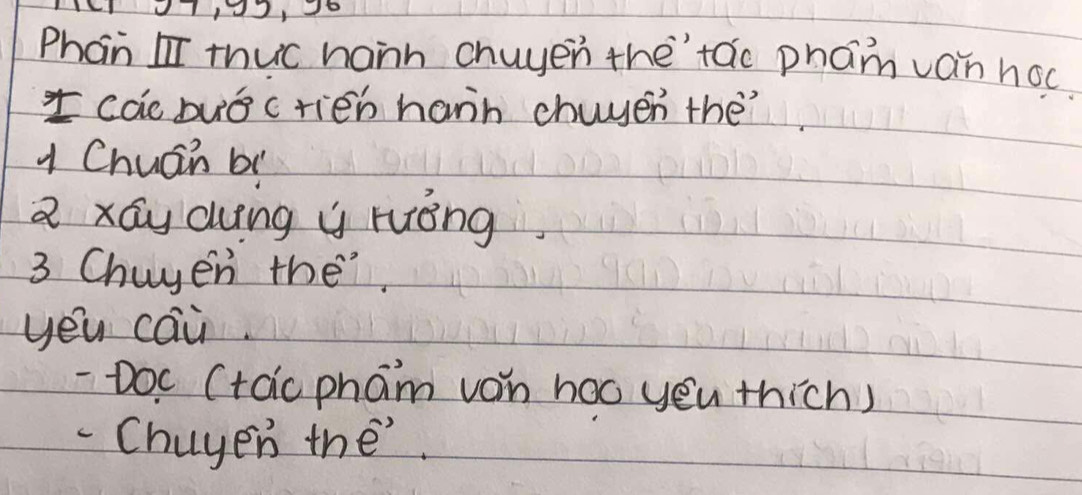 94, 95, 96
Phần III thực hành chuyển thể tác phẩm văn học.
I các bước tiến hành chuyển thể.
1 Chuẩn bị
2 xây dựng ý tưởng.
3 Chuyển thể.
yêu cầu.
- Đọc (tác phẩm văn học yêu thích)
- Chuyển thể.